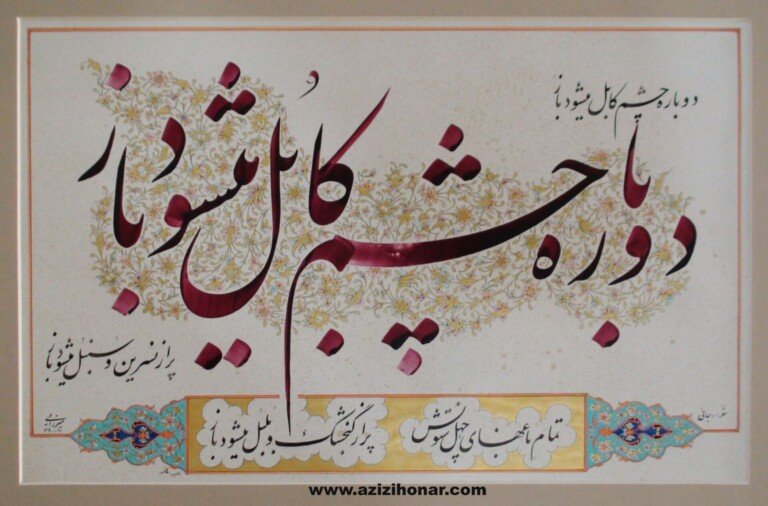 دوباره چشم کابل میشود باز
دوباره چشم کابل میشود باز
پر از نسرین و سنبل میشود باز
تمام باغهای چهل ستونش
پر از گنجشک و بلبل میشود باز
www.azizihonar.com